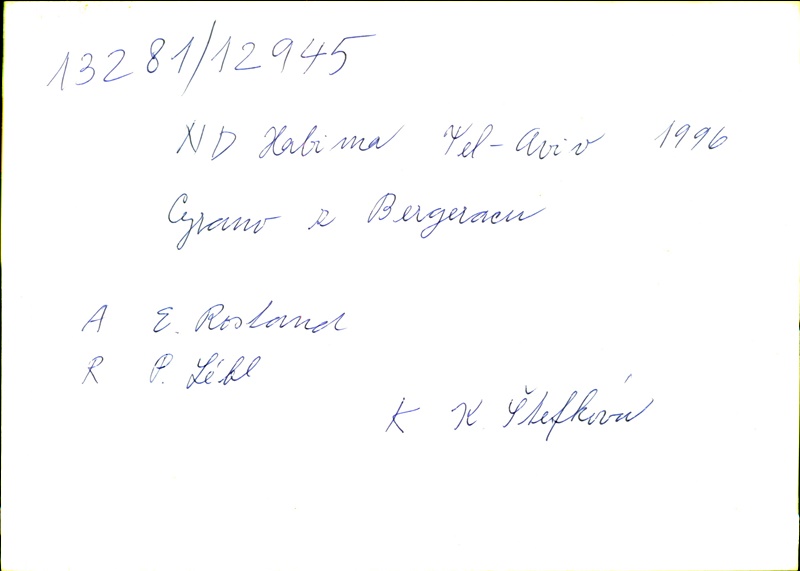 13281/12945
ND Habima Tel-Aviv 1996
Cyrano z Bergeracu
A E. Rostand
R P. Lébl
K K. Štefková